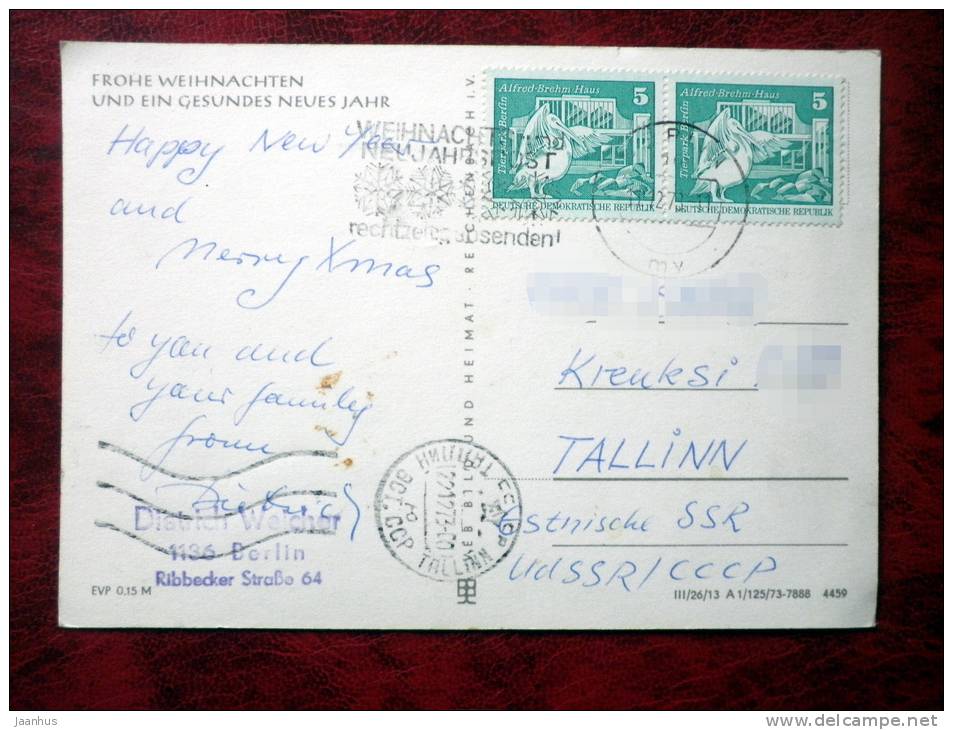 FROHE WEIHNACHTEN
UND EIN GESUNDES NEUES JAHR
Happy New Year
and
Merry Xmas
to you and
your family
from
Dietrich
Dietrich Weicher
1136 Berlin
Ribbecker Straße 64
EVP 0,15 M
WEIHNACHTS- UND
NEUJAHRSPOST
rechtzeitig absenden!
UND HEIMAT · REICHENBACH I. V.
VEB BILD
Alfred-Brehm-Haus
5
Tierpark Berlin
DEUTSCHE DEMOKRATISCHE REPUBLIK
Alfred-Brehm-Haus
5
Tierpark Berlin
DEUTSCHE DEMOKRATISCHE REPUBLIK
my
Kreuksi
TALLINN
Estnische SSR
UdSSR/CCCP
ТАЛЛИН
ЭСТ. ССР
TALLINN
III/26/13 A 1/125/73-7888 4459
Jaanhus
http://www.delcampe.net